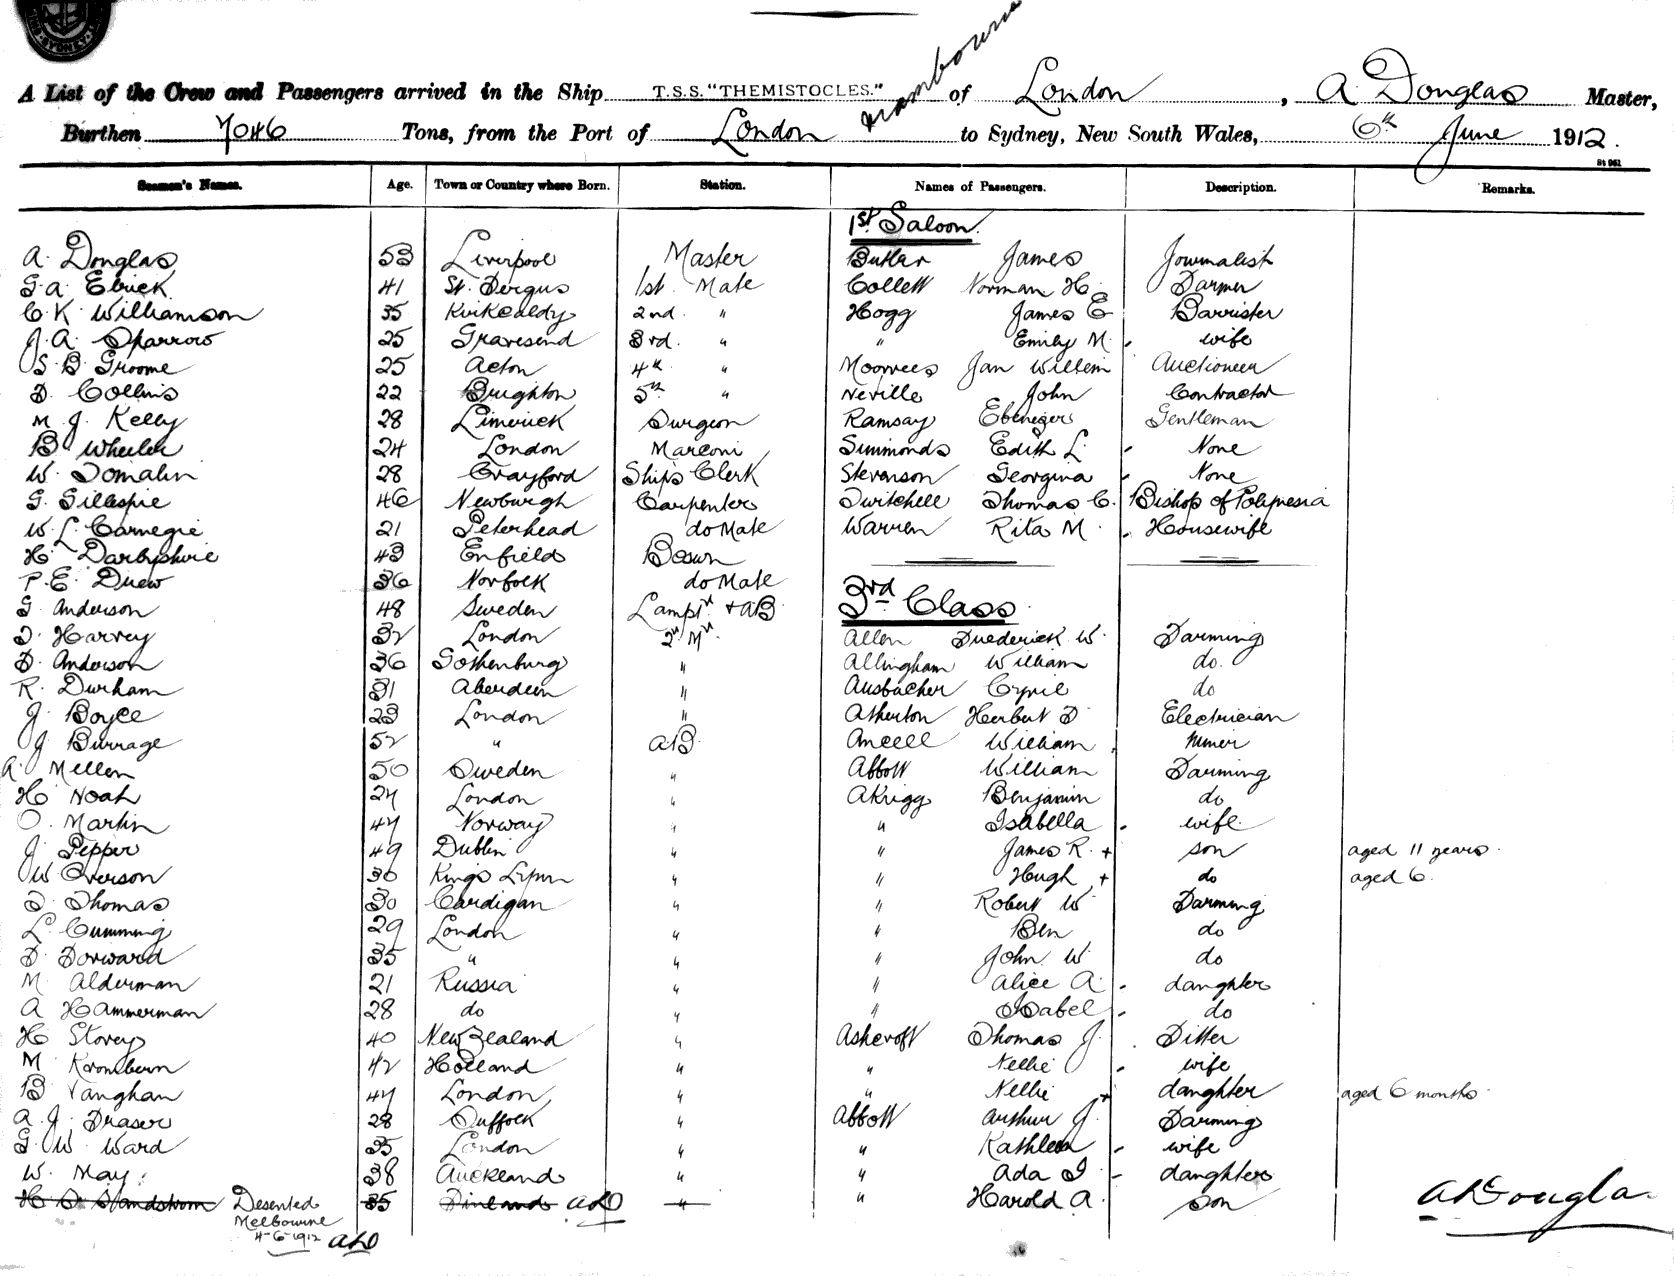 SYDNEY
A List of the Crew and Passengers arrived in the Ship T.S.S. "THEMISTOCLES." of London, A Douglas Master,
Burthen 7046 Tons, from the Port of London to Sydney, New South Wales, 6th June 1912.
Seamen's Names. Age. Town or Country where Born. Station. Names of Passengers. Description. Remarks.
1st Saloon
A. Douglas 53 Liverpool Master Butler James Journalist
G. A. 41 St. Fergus 1st. Mate Collett Norman H. Farmer
C. K. Williamson 35 Kirkcaldy 2nd. " Hogg James E Barrister
J. A. Sparrow 25 Gravesend 3rd. " " Emily M. - wife
S. B. Groome 25 Acton 4th " Moorrees Jan Willem Auctioneer
F. Collins 22 Brighton 5th " Neville John Contractor
M. J. Kelly 28 Limerick Surgeon Ramsay Ebenezer Gentleman
B Wheeler 24 London Marconi Simmonds Edith L. - None
W. Tomalin 28 Crayford Ships Clerk Stevenson Georgina - None
G. Gillespie 46 Newburgh Carpenter Twitchell Thomas C. Bishop of Polynesia
W. L. Carnegie 21 Peterhead do Mate Warren Rita M. - Housewife
H. Darbyshire 43 Enfield Bosun
P. E. Drew 36 Norfolk do Mate
3rd Class
G Anderson 48 Sweden Lampr + AB
T. Harvey 32 London Allen Frederick W. Farming
F. Anderson 36 Gothenburg " Allingham William do.
R. Durham 31 Aberdeen " Ausbacher Cyril do
J. Boyce 23 London " Atherton Herbert F Electrician
J. Burrage 52 " AB. Ancell William Miner
A. Mellen 50 Sweden " Abbott William Farming
H. Noah 24 London " Akrigg Benjamin do
O. Martin 44 Norway " " Isabella - wife
J. Pepper 49 Dublin " " James R. + son aged 11 years.
W Iverson 30 Kings Lynn " " Hugh + do aged 6.
D. Thomas 30 Cardigan " " Robert W. Farming
L. Cumming 29 London " " Ben do
F. Forward 35 " " " John W. do
M. Alderman 21 Russia " " Alice A. - daughter
A Hammerman 28 do " " Isabel - do
H Storey 40 New Zealand " Ashcroft Thomas J. Fitter
M 42 Holland " " Nellie - wife
B Vaughan 44 London " " Nellie + daughter aged 6 months.
A. J. Fraser 28 Suffolk " Abbott Arthur J. Farming
G. W. Ward 35 London " " Kathleen - wife
W. May. 38 Auckland " " Ada I - daughter
H. Sandstrom Deserted 35 Finland ALD " " Harold A. son
Melbourne
4-6-1912 ALD